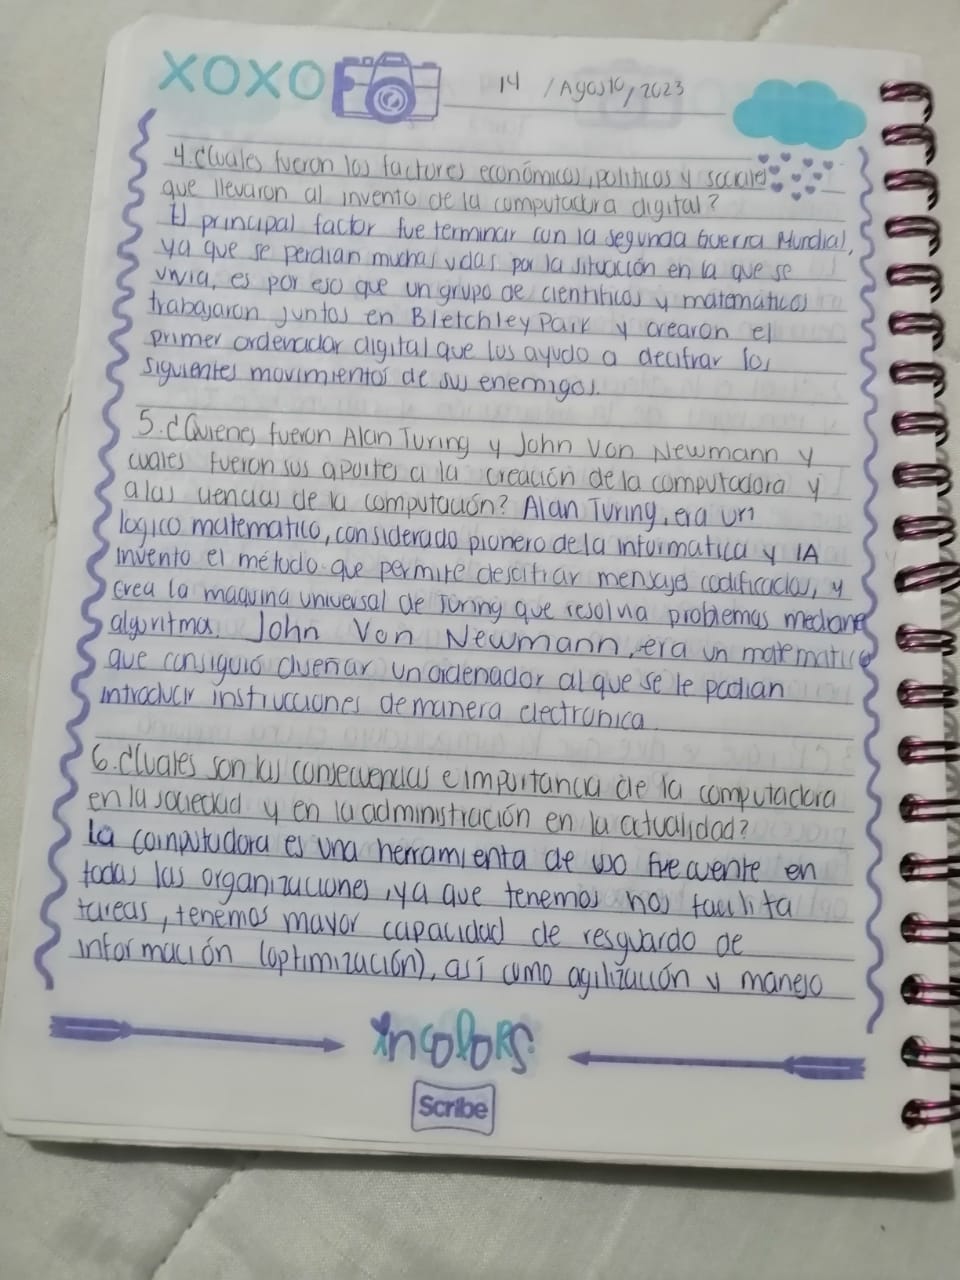 XOXO
14 / Agosto, / 2023
4. ¿Cuales fueron los factores económicos, politicos y sociales
que llevaron al invento de la computadora digital?
El principal factor fue terminar con la Segunda Guerra Mundial,
ya que se perdian muchas vidas por la situación en la que se
vivia, es por eso que un grupo de cientificos y matemáticos
trabajaron juntos en Bletchley Park y crearon el
primer ordenador digital que los ayudo a decifrar los
siguientes movimientos de sus enemigos.
5. ¿Quienes fueron Alan Turing y John Von Newmann y
cuales fueron sus aportes a la creación de la computadora y
a las ciencias de la computación? Alan Turing, era un
logico matematico, considerado pionero de la informatica y IA
invento el método que permite descifrar mensajes codificados, y
crea la maquina universal de Turing que resolvia problemas mediante
algoritmo. John Von Newmann, era un matematico
que consiguió diseñar un ordenador al que se le podian
introducir instrucciones de manera electronica
6. ¿Cuales son las consecuencias e importancia de la computadora
en la sociedad y en la administración en la actualidad?
La computadora es una herramienta de uso frecuente en
todas las organizaciones, ya que tenemos nos facilita
tareas, tenemos mayor capacidad de resguardo de
información (optimización), así como agilización y manejo
incolors
Scribe